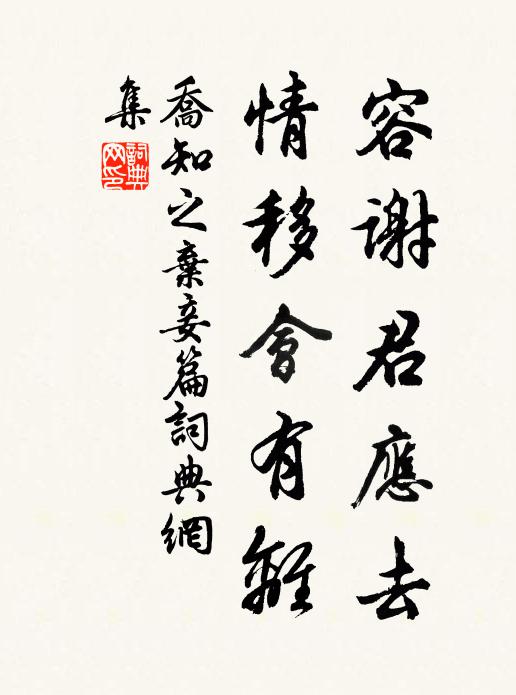 容谢君應去
情移會有離
喬知之棄妾篇詞典網
集
詞典网印